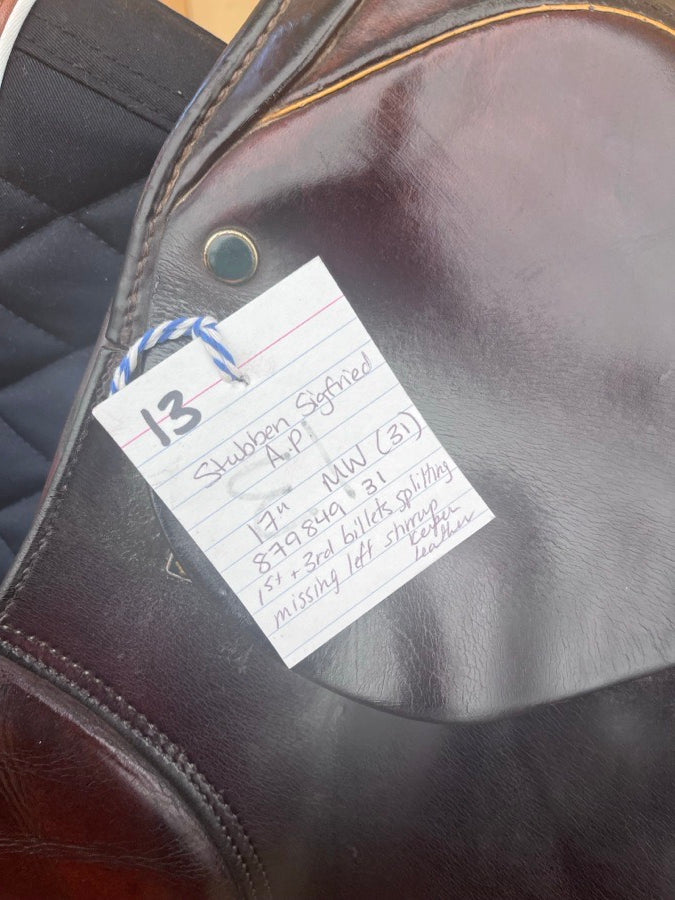 13
Stubben Sigfried
A.P.
17" MW (31)
879849 31
1st + 3rd billets splitting
missing left stirrup
keeper
leather